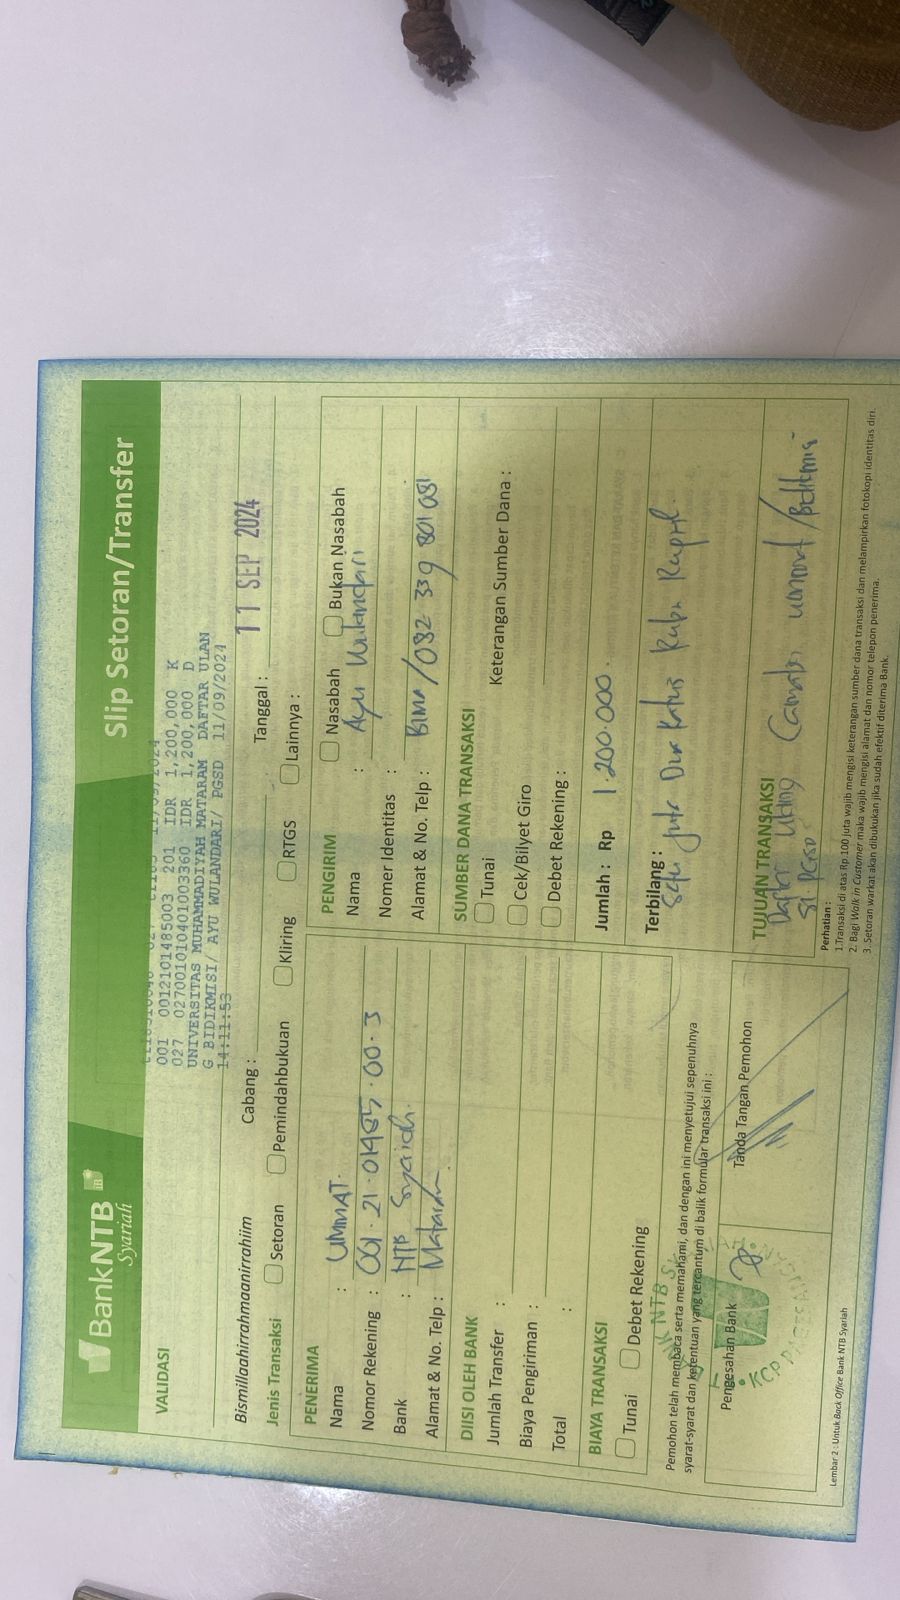 BankNTB
Syariah
Slip Setoran/Transfer
VALIDASI
001 0012101485003 201 IDR 1,200,000 K
027 0270010104001003360 IDR 1,200,000 D
UNIVERSITAS MUHAMMADIYAH MATARAM DAFTAR ULAN
G BIDIKMISI/ AYU WULANDARI/ PGSD 11/09/2024
14:11:53
Bismillaahirrahmaanirrahiim
Cabang :
Tanggal : 11 SEP 2024
Jenis Transaksi
Setoran
Pemindahbukuan
Kliring
RTGS
Lainnya :
PENERIMA
Nama : UMMAT.
Nomor Rekening : 001.21.01485.00.3
Bank : NTB Syariah.
Alamat & No. Telp : Mataram
PENGIRIM
Nasabah
Bukan Nasabah
Nama : Ayu Wulandari
Nomer Identitas :
Alamat & No. Telp : Bima/082 339 801 051
DIISI OLEH BANK
Jumlah Transfer :
Biaya Pengiriman :
Total :
SUMBER DANA TRANSAKSI
Tunai
Cek/Bilyet Giro
Keterangan Sumber Dana :
Debet Rekening :
BIAYA TRANSAKSI
Tunai
Debet Rekening
Jumlah : Rp 1.200.000.
Terbilang :
Satu Juta Dua Ratus Ribu Rupiah.
Pemohon telah membaca serta memahami, dan dengan ini menyetujui sepenuhnya
syarat-syarat dan ketentuan yang tercantum di balik formulir transaksi ini :
Pengesahan Bank
Tanda Tangan Pemohon
TUJUAN TRANSAKSI
Daftar Ulang
S1 PGSD
Perhatian :
1.Transaksi di atas Rp 100 juta wajib mengisi keterangan sumber dana transaksi dan melampirkan fotokopi identitas diri.
2. Bagi Walk in Customer maka wajib mengisi alamat dan nomor telepon penerima.
3. Setoran warkat akan dibukukan jika sudah efektif diterima Bank.
Lembar 2 : Untuk Back Office Bank NTB Syariah